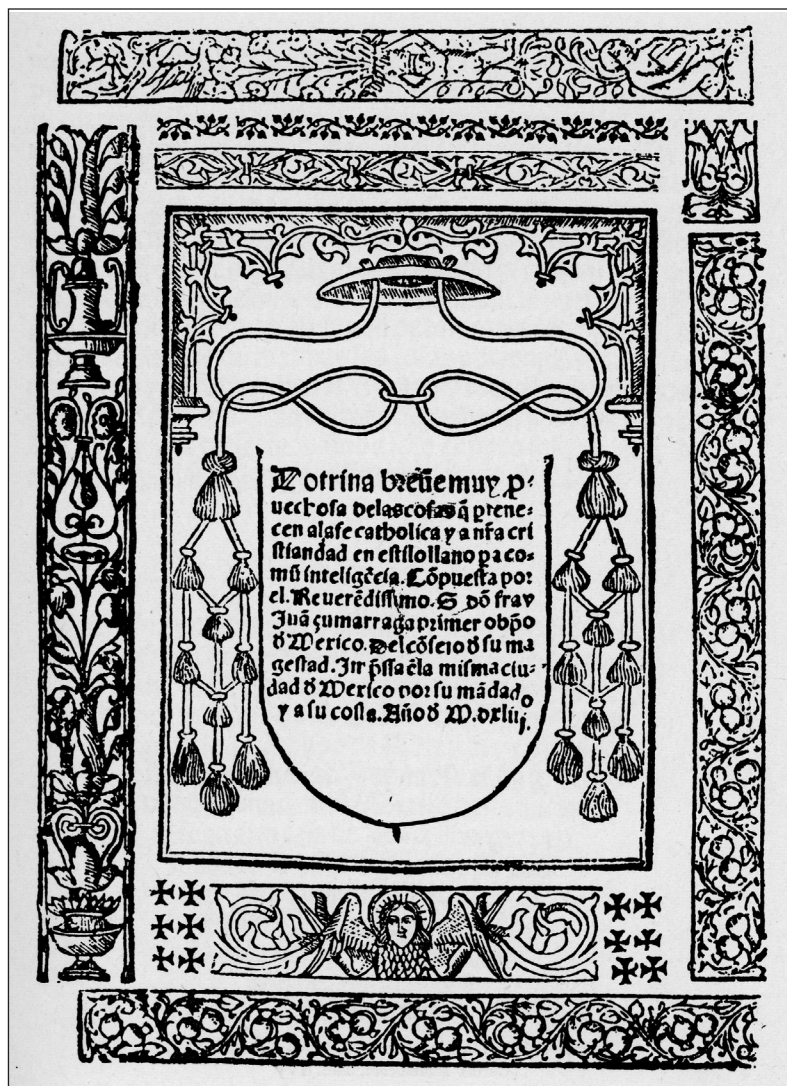 Dotrina breue muy p̱-
uechosa delas cosas q̄ ꝑtene-
cen ala fe catholica y a nr̄a cri
stiandad en estilo llano ꝑa co-
mū inteligēcia. Cōpuesta por
el. Reuerēdissimo. S. dō fray
Juā çumarraga primer obp̄o
đ Mexico. Del cōsejo đ su ma
gestad. Impssa ēla misma ciu-
dad đ Mexico por su mādado
y a su costa. Año đ M. dxliij.